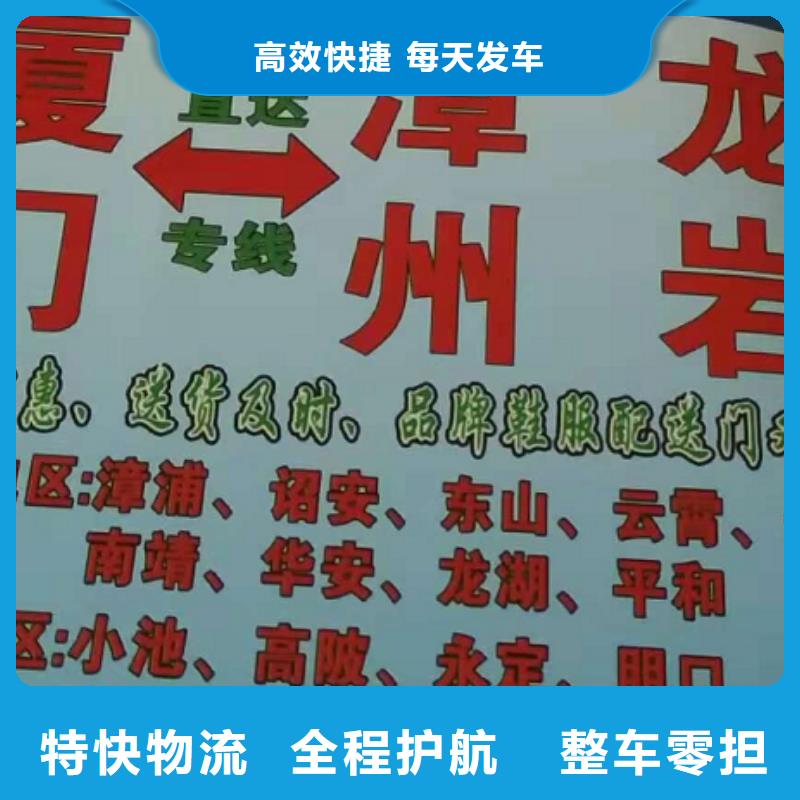 高效快捷 每天发车
厦 直达 漳 龙
门 专线 州 岩
惠、送货及时、品牌鞋服配送门
区:漳浦、诏安、东山、云霄、
南靖、华安、龙湖、平和
区:小池、高陂、永定、
特快物流 全程护航 整车零担